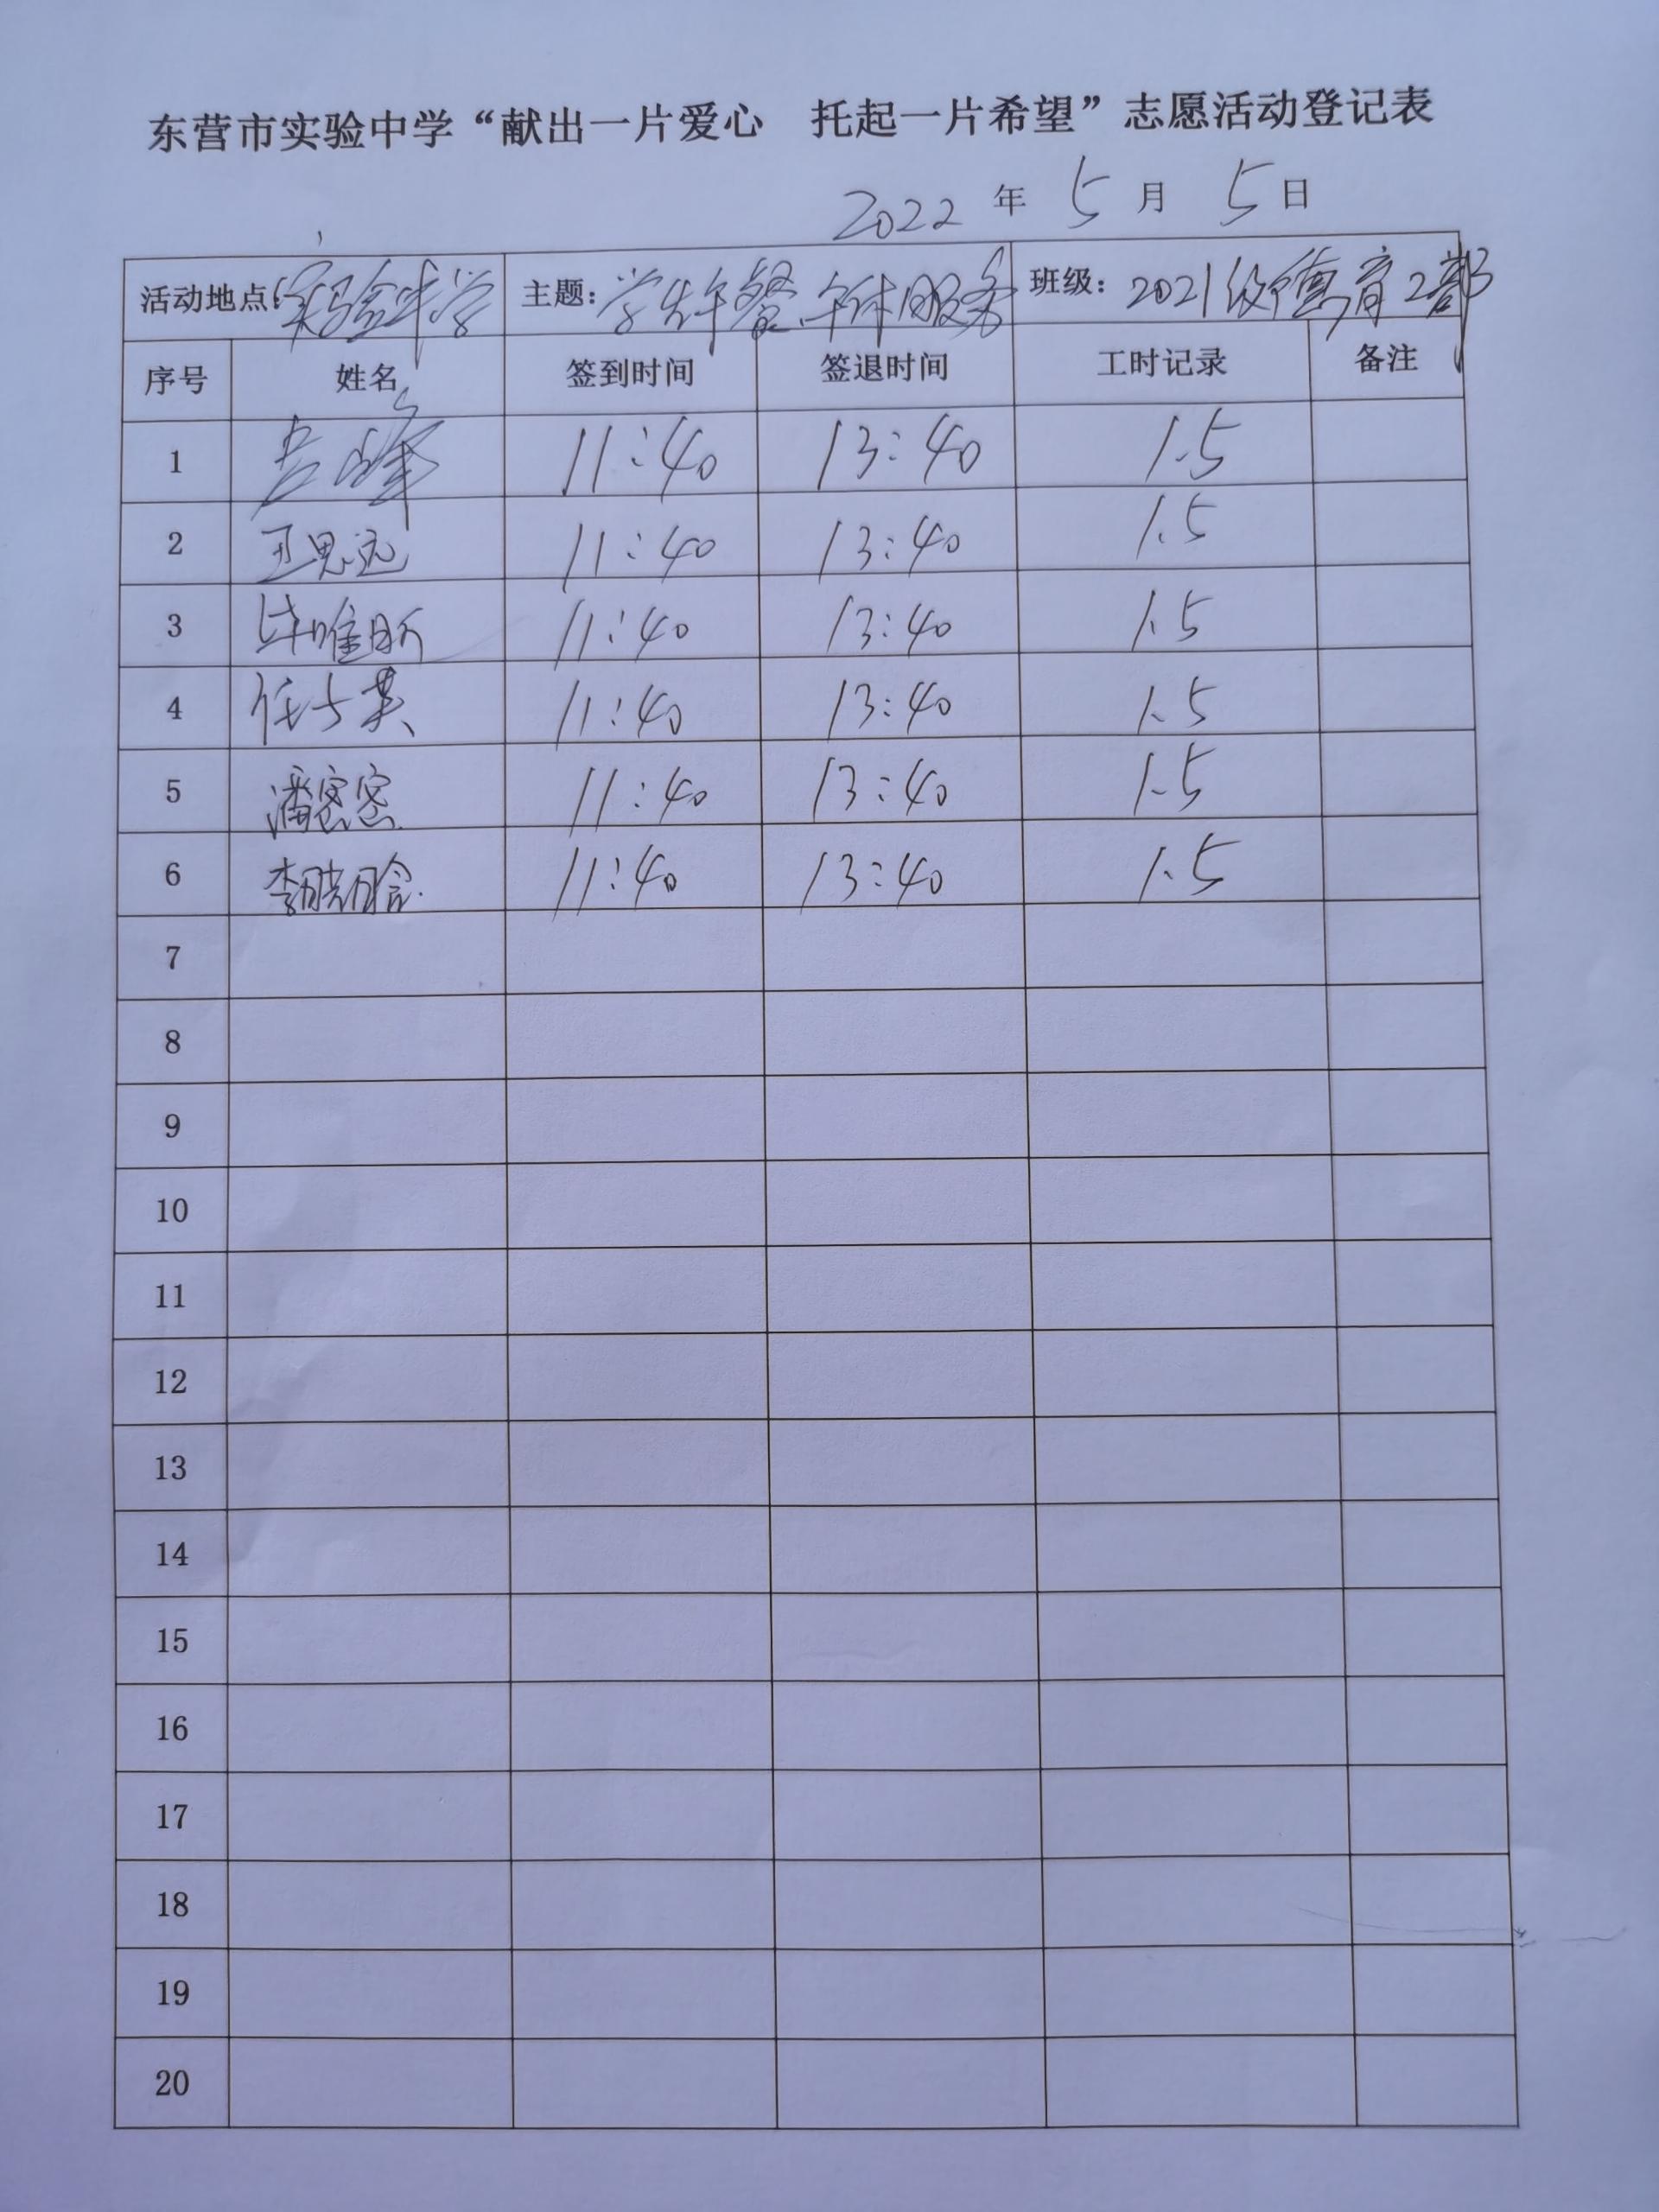 东营市实验中学“献出一片爱心 托起一片希望”志愿活动登记表
2022 年 5 月 5 日
活动地点:实验中学 主题:学生午餐、午休服务 班级:2021级德育2部
序号 姓名 签到时间 签退时间 工时记录 备注
1 峰 11:40 13:40 1.5
2 王思远 11:40 13:40 1.5
3 毕唯昕 11:40 13:40 1.5
4 任士英 11:40 13:40 1.5
5 潘密密 11:40 13:40 1.5
6 李晓晗 11:40 13:40 1.5
7
8
9
10
11
12
13
14
15
16
17
18
19
20